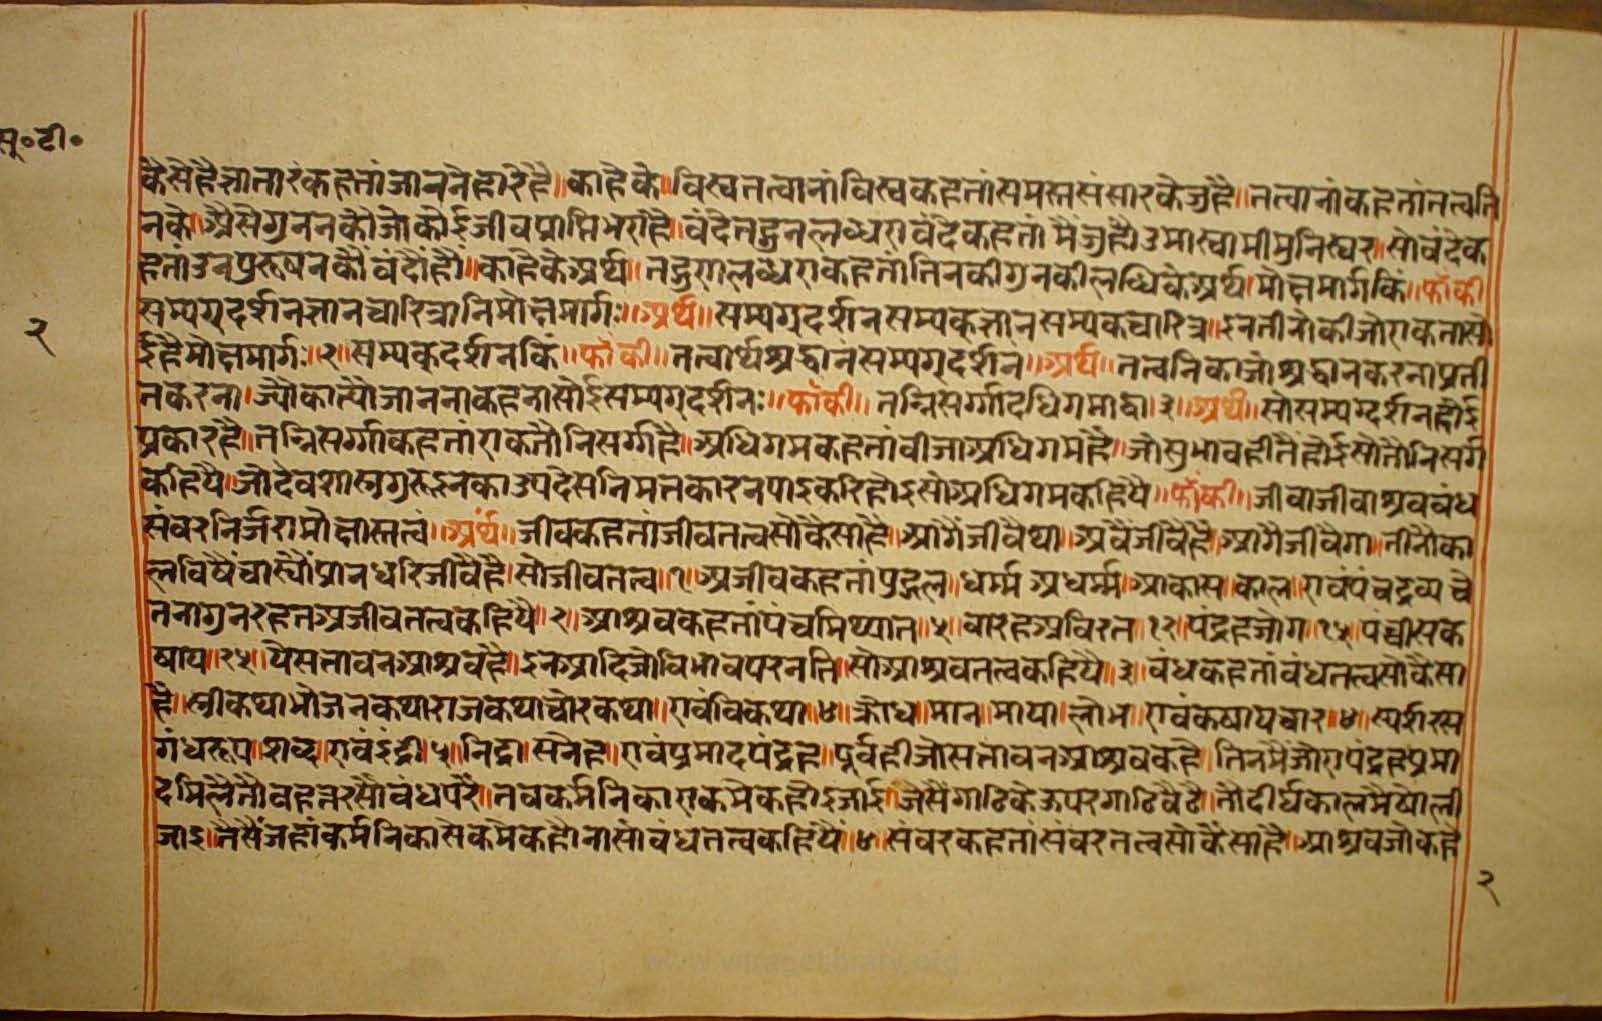 सू॰टी॰
कैसेहैज्ञातारंकहतांजाननेहारेहै॥काहेके॥विस्वतत्वानांविस्वकहतांसमस्तसंसारकेजुहै॥तत्वानांकहतांतत्वति
नके॥अैसेगुननकौजोकोईजीवप्राप्तिभएहै॥वंदेतद्गुनलब्धएवंदेकहतांमैजुहौंउमास्वामीमुनिस्वर॥सोवंदेक
हतांउनपुरूषनकौवंदौंहौं॥काहेकेअर्थ॥तद्गुणलब्धएकहतांतिनकीगुनकीलब्धिकेअर्थ॥मोक्षमार्गकिं॥फांकी
सम्यग्दर्शनज्ञानचारित्रानिमोक्षमार्गः॥अर्थ॥सम्यग्दर्शनसम्यक्ज्ञानसम्यकचारित्र॥इनतीनोकीजोएकतासो
ईहैमोक्षमार्गः॥२॥सम्यक्दर्शनकिं॥फांकी॥तत्वार्थश्रद्धानंसम्यग्दर्शन॥अर्थ॥तत्वनिकाजोश्रद्धानकरनाप्रती
तकरना॥ज्यौकात्यौजाननाकहनासोईसम्यग्दर्शनः॥फांकी॥तन्निसर्गादधिगमाद्वा॥३॥अर्थ॥सोसम्यग्दर्शनदोई
प्रकारहै॥तन्निसर्गाकहतांएकतौनिसर्गहै॥अधिगमकहतांबीजाअधिगमहै॥जोसुभावहीतैंहोईसोतौनिसर्ग
कहियै॥जोदेवशास्त्रगुरूइनकाउपदेसनिमतकारनपाइकरिहोइसोअधिगमकहियै॥फांकी॥जीवाजीवाश्रवबंध
संवरनिर्जरामोक्षास्तत्वं॥अर्थ॥जीवकहतांजीवतत्वसोकैसाहै॥आगैंजीवैथा॥अवैंजीवैहै॥आगैजीवैगा॥तीनौका
लविषैंचास्यौंप्रानधरिजीवैहै॥सोजीवतत्व॥१॥अजीवकहतांपुद्गल॥धर्म्मअधर्म्म॥आकास॥काल॥एवंपंचद्रव्यचे
तनागुनरहतअजीवतत्वकहियै॥२॥आश्रवकहतांपंचमिथ्यात॥५॥बारहअविरत॥१२॥पंद्रहजोग॥१५॥पंच्चीसक
षाय॥२५॥येसतावनआश्रवहै॥इनआदिजोविभावपरनति॥सोआश्रवतत्वकहियै॥३॥बंधकहतांबंधतत्वसोकैसा
है॥स्त्रीकथाभोजनकथाराजकथाचोरकथा॥एवंविकथा॥४॥क्रोध॥मान॥माया॥लोभ॥एवंकषायचार॥४॥स्पर्शरस
गंधरूप॥शब्द॥एवंइंद्री॥५॥निद्रा॥सनेह॥एवंप्रमादपंद्रह॥पूर्वहीजोसतावनआश्रवकहे॥तिनमैजोएपंद्रहप्रमा
दमिलैतौबहत्तरसौबंधपरै॥नवकर्मनिकाएकमेकहोइजाई॥जैसैंगाठिकेऊपरगाठिबैठै॥तौदीर्घकालमैषोली
जाइ॥तैसैंजहांकर्मनिकासेकमेकहोनासोबंधतत्वकहियै॥४॥संवरकहतांसंवरतत्वसोकैसाहै॥आश्रवजोकहे
२
२